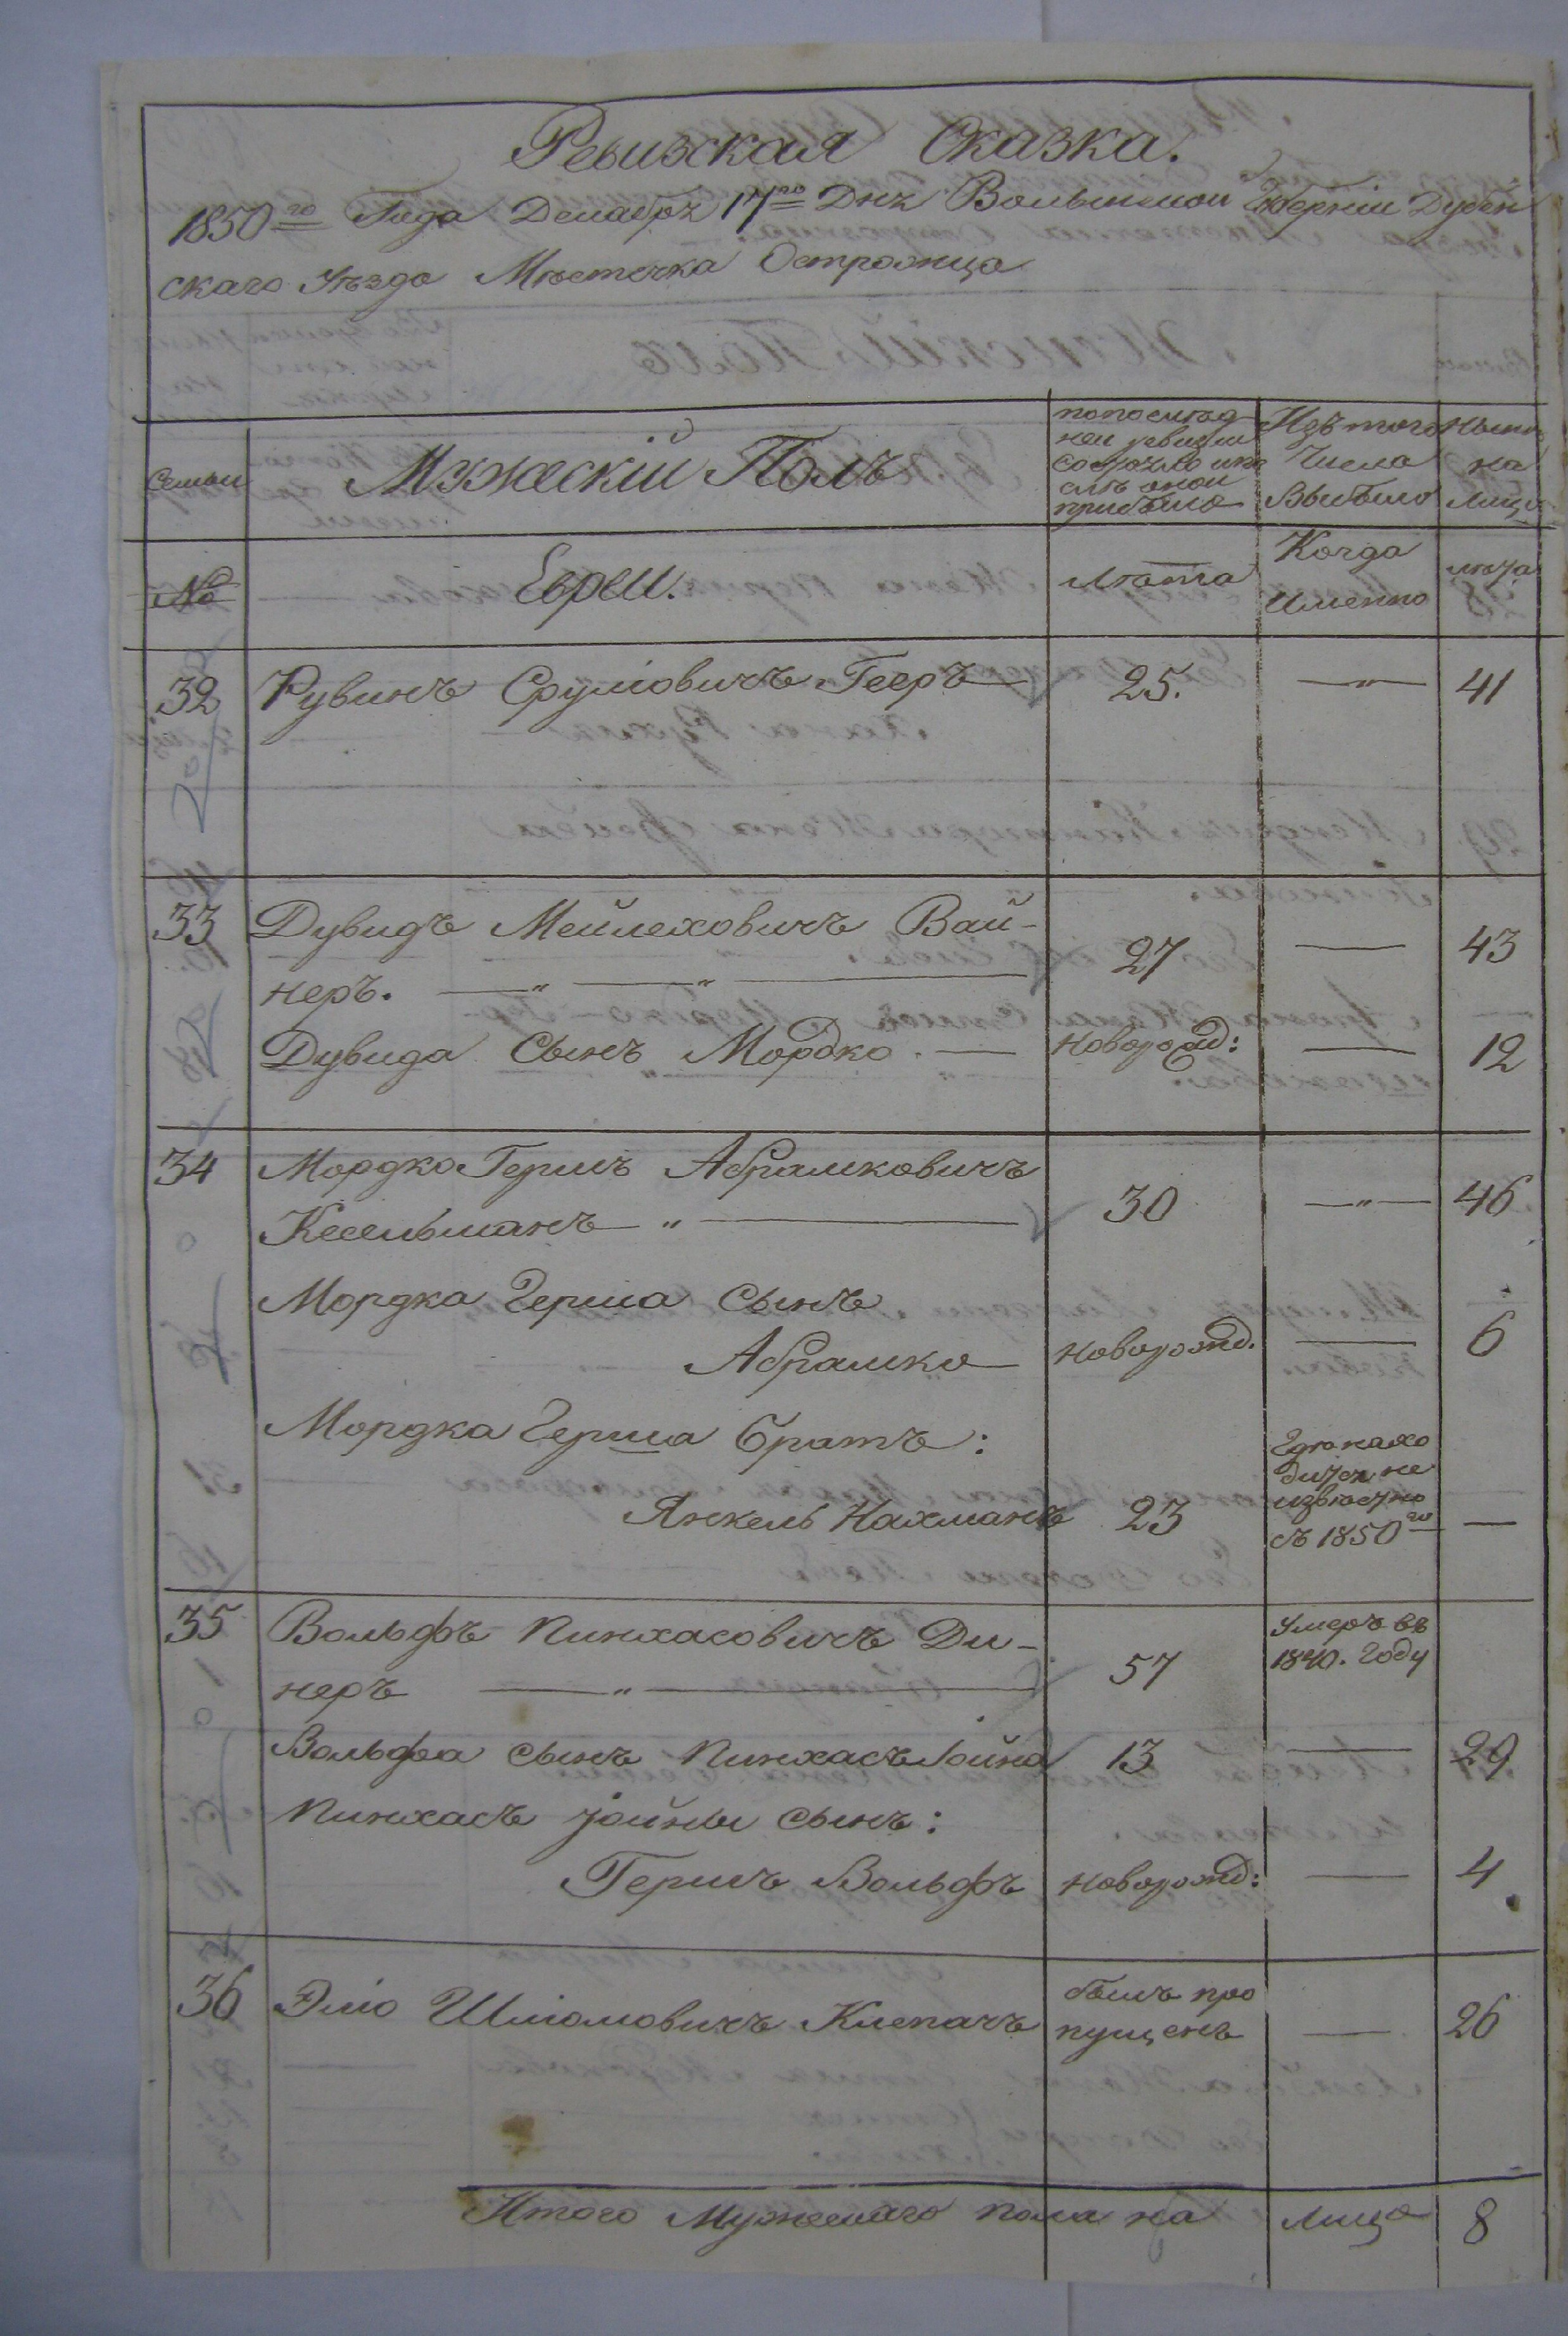 Ревизская Сказка.
1850го Года Декабря 17го Дня Волынской Губерніи Дубен
скаго Уѣзда Мѣстечка Острожца
Семьи
Мужескій Полъ
по послѣд
ней ревизіи
состояло или
послѣ оной
прибыло
Изъ того
Числа
Выбыло
Нынѣ
на
Лицо
№
Евреи.
Лѣта
Когда
Именно
лѣта
32 Рувинъ Сруліовичъ Гееръ 25. — " — 41
33 Дувидъ Мейлеховичъ Вай-
неръ. — " — " — 27 — 43
Дувида сынъ Мордко. — новорожд: — 12
34 Мордко Гершъ Абрамковичъ
Кесельманъ — " — 30 — " — 46
Мордка Герша сынъ
Абрамко — новорожд. — 6
Мордка Герша братъ:
Янкель Нахманъ 23
Гдѣ нахо
дится не
извѣстно
съ 1850го —
35 Вольфъ Пинхасовичъ Ди-
неръ — " — 57
Умеръ въ
1840. Году
Вольфа сынъ Пинхасъ Іойна 13 — 29
Пинхасъ Іойны сынъ:
Гершъ Вольфъ новорожд: — 4
36 Эліо Шліомовичъ Клепачъ
былъ про
пущенъ — 26
Итого Мужескаго пола на Лицо 8